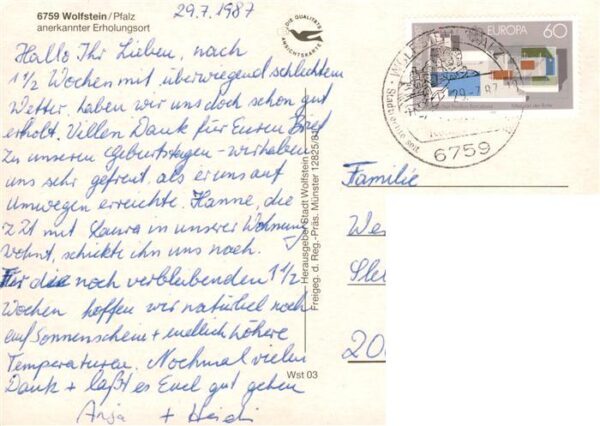 6759 Wolfstein/Pfalz
anerkannter Erholungsort
29.7.1987
Hallo Ihr Lieben, nach
1 1/2 Wochen mit überwiegend schlechtem
Wetter, haben wir uns doch schon gut
erholt. Vielen Dank für Euren Brief
zu unseren Geburtstagen - wir haben
uns sehr gefreut, als er uns auf
Umwegen erreichte. Hanne, die
z Zt mit Laura in unserer Wohnung
wohnt, schickte ihn uns nach.
Für die noch verbleibenden 1 1/2
Wochen hoffen wir natürlich noch
auf Sonnenschein + endlich höhere
Temperaturen. Nochmal vielen
Dank + laßt es Euch gut gehen
Anja + Heidi
DIE QUALITÄTS
ANSICHTSKARTE
Herausgeber Stadt Wolfstein
Freigeg. d. Reg.-Präs. Münster 12825/8
Wst 03
EUROPA 60
29.-7.87
Stadtrechte seit
6759
Familie
We
Sle
20